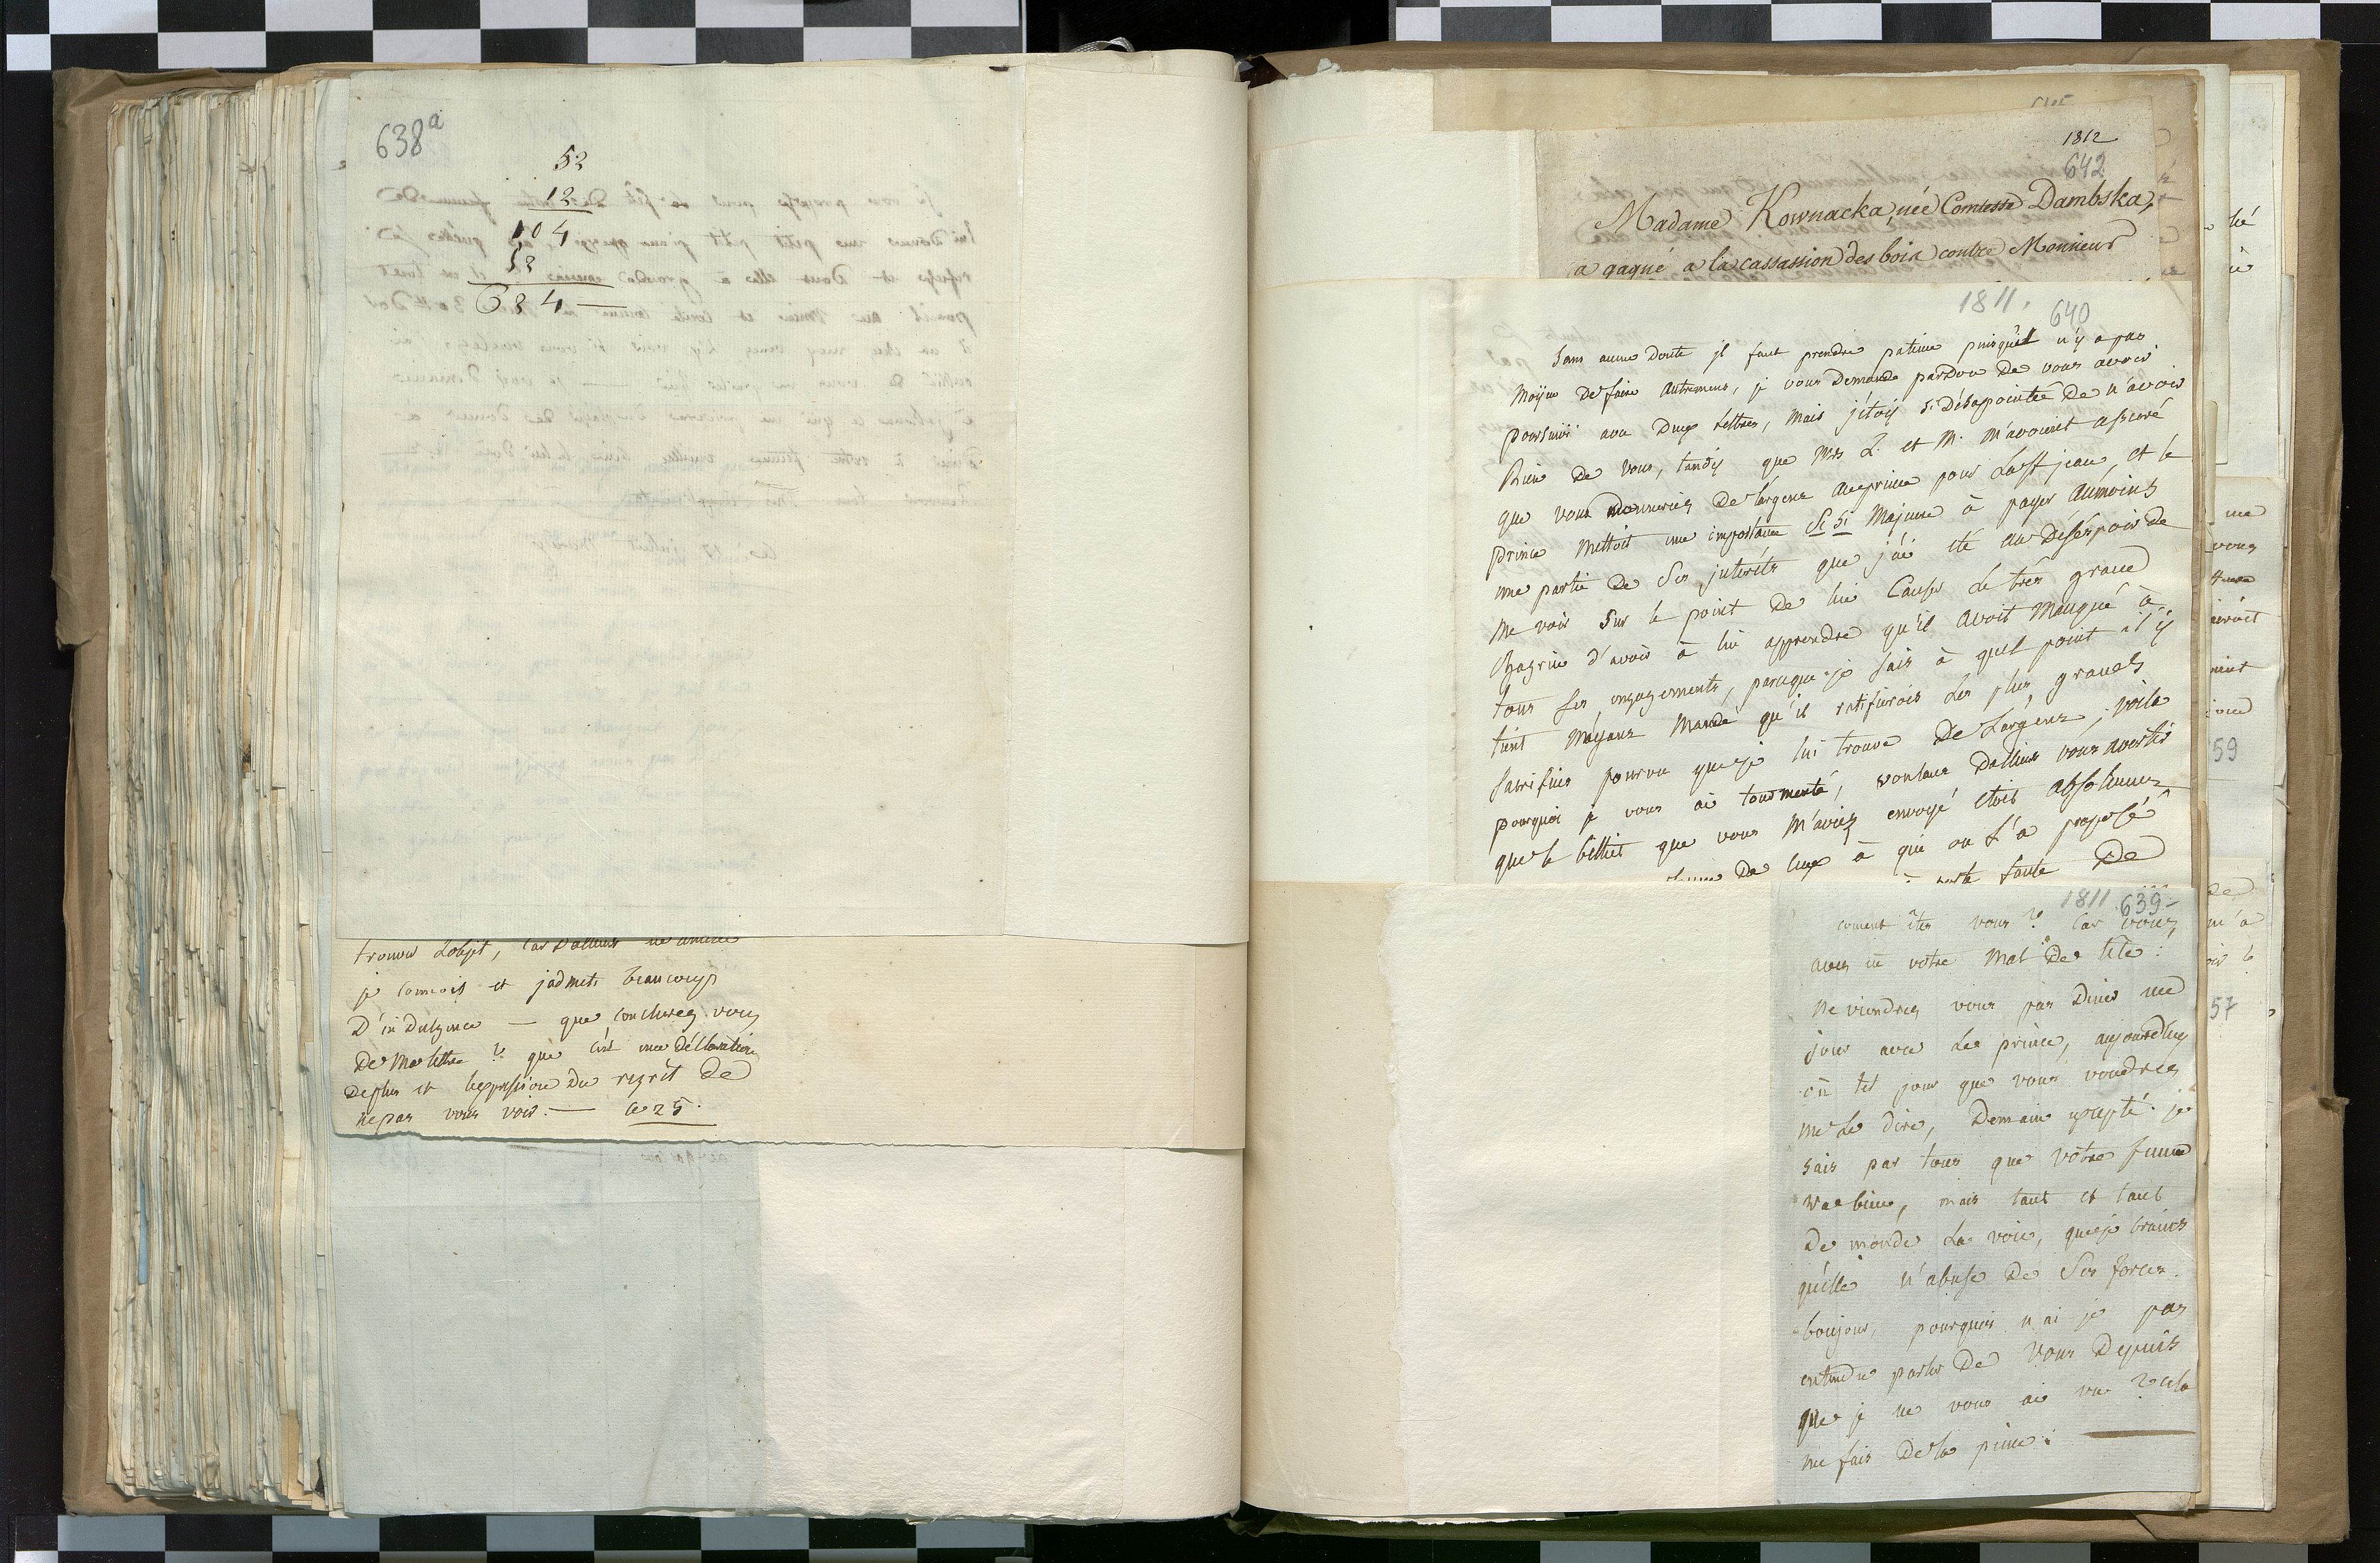 638a
52
12
104
52
624
trouver l'objet, car d'ailleurs
je connois et j'admets beaucoup
D'indulgence — que conclurez vous
De ma lettre ? que c'est une déclaration
de plus et l'expression du regrêt De
ne pas vous voir. — ce 25.
1812
642
Madame Kownacka, née Comtesse Dambska,
a gagné a la cassassion des bois contre Monsieur
1811. 640
Sans aucun doute il faut prendre patience puisqu'il n'y a pas
Moyen De faire autrement, je vous Demande pardon De vous avoir
poursuivi avec Deux lettres, Mais j'étois si Désapointée De n'avoir
Rien De vous, tandis que Mrs L. et M. m'avoient assuré
que vous donneriez De l'argent au prince pour la St jean, et le
prince Mettoit une importance si si Majeure à payer aumoins
une partie De ses intérêts que j'ai été au Désespoir De
Me voir Sur le point De lui Causer le très grand
Chagrin d'avoir à lui apprendre qu'il avoit Manqué à
tous ses engagements, parceque je sais à quel point il y
tient M'ayant Mandé qu'il ratifierois les plus grands
sacrifices pourvu que je lui trouve De l'argent ; voila
pourquoi je vous ai tourmenté, voulant Dailleurs vous avertir
que le billiet que vous M'aviez envoyé étoit absolument
De ceux à qui on l'a proposé
faute De
1811 639
coment êtes vous ? Car vous
avez eu votre Mal De tête :
Ne viendrez vous pas Diner un
jour avec Le prince, aujourdhuy
oû tel jour que vous voudrez
me le dire, Demain excepté. je
sais par tous que vôtre femme
va bien, mais tant et tant
De monde La voie, que je crains
qu'elle n'abuse De Ses forces.
bonjour, pourquoi n'ai je pas
entendu parler De Vous Depuis
que je ne vous ai vu ? cela
me fais De la peine. —
59
57